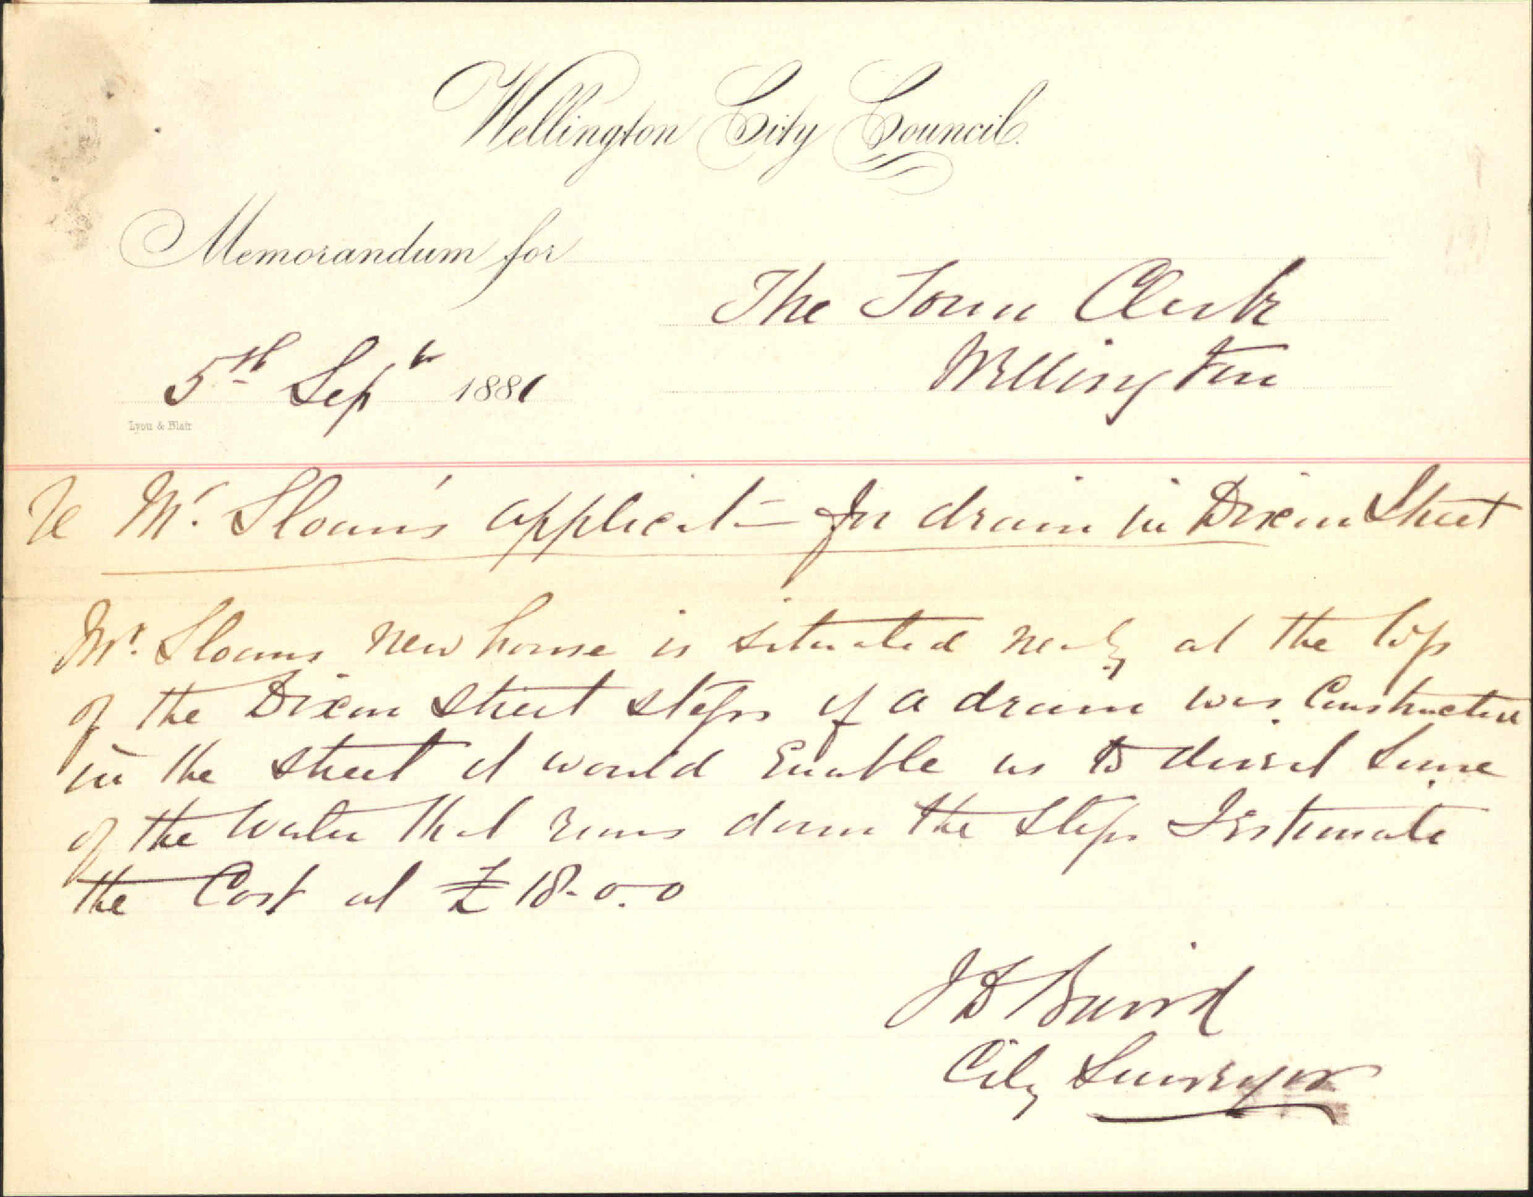 Wellington City Council.
Memorandum for
The Town Clerk
Wellington
5th Sepr 1881
Lyon & Blair
Re Mr. Sloan's applicat- for drain in Dixon Street
Mr. Sloans new house is situated nearly at the top
of the Dixon Street steps if a drain was Constructed
in the street it would Enable us to divert Some
of the Water that runs down the Steps I Estimate
the Cost at £18-0.0
J D Baird
City Surveyor